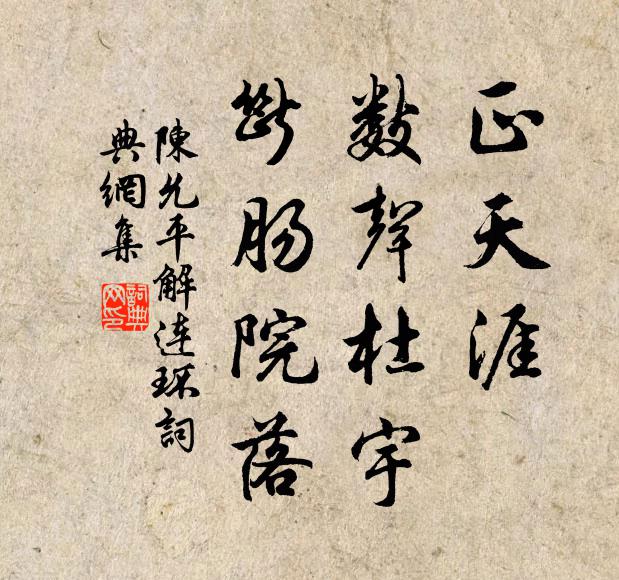 正天涯
數聲杜宇
斷腸院落
陳允平解連環詞
典網集
詞典網印